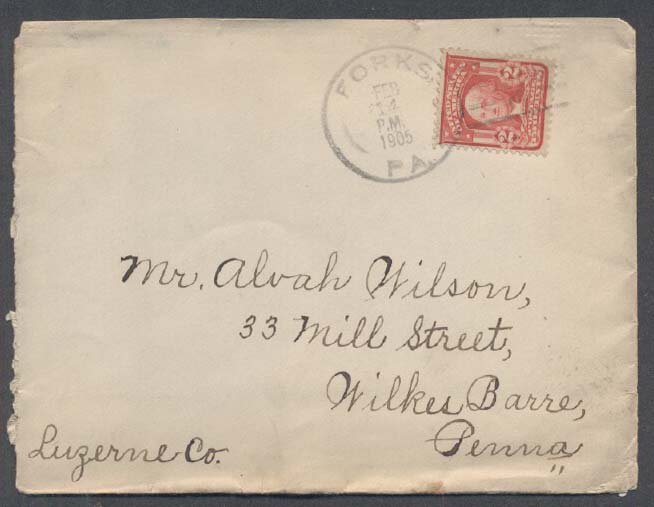 FORKS,
FEB
14
P.M.
1905
PA.
2 2
Mr. Alvah Wilson,
33 Mill Street,
Wilkes Barre,
Penna
Luzerne Co.